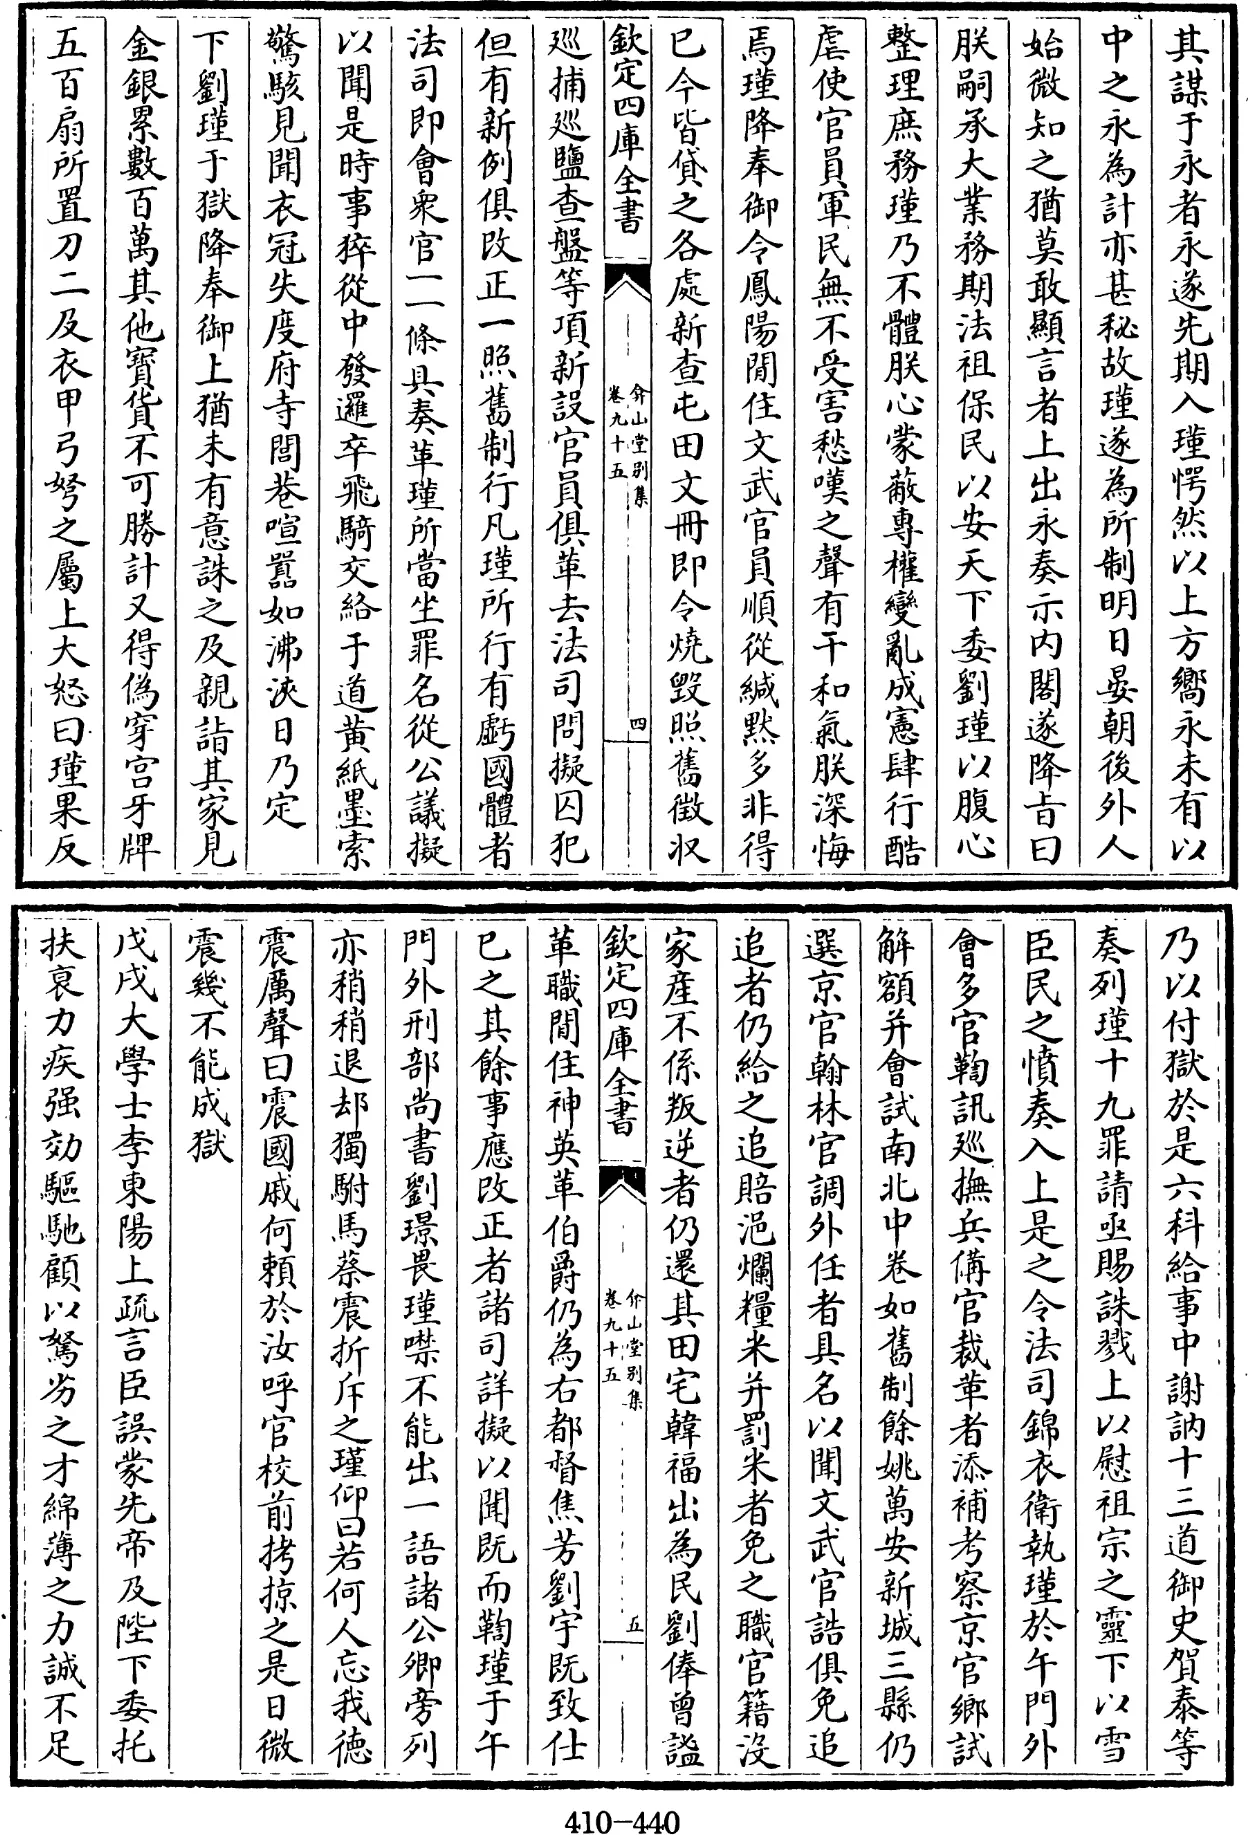 其謀于永者永遂先期入瑾愕然以上方嚮永未有以
中之永為計亦甚秘故瑾遂為所制明日晏朝後外人
始微知之猶莫敢顯言者上出永奏示内閣遂降旨曰
朕嗣承大業務期法祖保民以安天下委劉瑾以腹心
整理庶務瑾乃不體朕心蒙蔽專權變亂成憲肆行酷
虐使官員軍民無不受害愁嘆之聲有干和氣朕深悔
焉瑾降奉御令鳳陽閒住文武官員順從緘默多非得
已今皆貸之各處新查屯田文冊即令燒毀照舊徵収
欽定四庫全書
弇山堂别集
卷九十五
四
廵捕廵鹽查盤等項新設官員俱革去法司問擬囚犯
但有新例俱改正一照舊制行凡瑾所行有虧國體者
法司即會衆官一一條具奏革瑾所當坐罪名從公議擬
以聞是時事猝從中發邏卒飛騎交絡于道黄紙墨索
驚駭見聞衣冠失度府寺閭巷喧嚻如沸浹日乃定
下劉瑾于獄降奉御上猶未有意誅之及親詣其家見
金銀累數百萬其他寳貨不可勝計又得偽穿宫牙牌
五百扇所置刀二及衣甲弓弩之屬上大怒曰瑾果反
乃以付獄於是六科給事中謝訥十三道御史賀泰等
奏列瑾十九罪請亟賜誅戮上以慰祖宗之靈下以雪
臣民之憤奏入上是之令法司錦衣衛執瑾於午門外
會多官鞫訊廵撫兵備官裁革者添補考察京官鄉試
解額并會試南北中卷如舊制餘姚萬安新城三縣仍
選京官翰林官調外任者具名以聞文武官誥俱免追
追者仍給之追賠浥爛糧米并罰米者免之職官籍没
家産不係叛逆者仍還其田宅韓福出為民劉俸曽謐
欽定四庫全書
弇山堂别集
卷九十五
五
革職閒住神英革伯爵仍為右都督焦芳劉宇既致仕
已之其餘事應改正者諸司詳擬以聞既而鞫瑾于午
門外刑部尚書劉璟畏瑾噤不能出一語諸公卿旁列
亦稍稍退却獨駙馬蔡震折斥之瑾仰曰若何人忘我德
震厲聲曰震國戚何賴於汝呼官校前拷掠之是日微
震幾不能成獄
戊戌大學士李東陽上疏言臣誤蒙先帝及陛下委托
扶衰力疾强効驅馳顧以駑劣之才綿薄之力誠不足
410-440